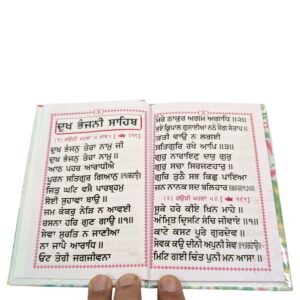 ਦੁਖ ਭੰਜਨੀ ਸਾਹਿਬ
(੧) ਗਉੜੀ ਮਹਲਾ ੫ ਮਾਂਝ ॥
ਦੁਖ ਭੰਜਨੁ ਤੇਰਾ ਨਾਮੁ ਜੀ
ਦੁਖ ਭੰਜਨੁ ਤੇਰਾ ਨਾਮੁ ॥
ਆਠ ਪਹਰ ਆਰਾਧੀਐ
ਪੂਰਨ ਸਤਿਗੁਰ ਗਿਆਨੁ ॥੧॥ਰਹਾਉ॥
ਜਿਤੁ ਘਟਿ ਵਸੈ ਪਾਰਬ੍ਰਹਮੁ
ਸੋਈ ਸੁਹਾਵਾ ਥਾਉ ॥
ਜਮ ਕੰਕਰੁ ਨੇੜਿ ਨ ਆਵਈ
ਰਸਨਾ ਹਰਿ ਗੁਣ ਗਾਉ ॥੧॥
ਸੇਵਾ ਸੁਰਤਿ ਨ ਜਾਣੀਆ
ਨਾ ਜਾਪੈ ਆਰਾਧਿ ॥
ਓਟ ਤੇਰੀ ਜਗਜੀਵਨਾ
ਮੇਰੇ ਠਾਕੁਰ ਅਗਮ ਅਗਾਧਿ ॥੨॥
ਭਏ ਕ੍ਰਿਪਾਲ ਗੁਸਾਈਆ ਨਠੇ ਸੋਗ ਸੰਤਾਪ ॥
ਤਤੀ ਵਾਉ ਨ ਲਗਈ
ਸਤਿਗੁਰਿ ਰਖੇ ਆਪਿ ॥੩॥
ਗੁਰੁ ਨਾਰਾਇਣੁ ਦਯੁ ਗੁਰੁ
ਗੁਰੁ ਸਚਾ ਸਿਰਜਣਹਾਰੁ ॥
ਗੁਰਿ ਤੁਠੈ ਸਭ ਕਿਛੁ ਪਾਇਆ
ਜਨ ਨਾਨਕ ਸਦ ਬਲਿਹਾਰ
(੨) ਗਉੜੀ ਮਹਲਾ ੫ ॥
ਸੂਕੇ ਹਰੇ ਕੀਏ ਖਿਨ ਮਾਹੇ ॥
ਅੰਮ੍ਰਿਤ ਦ੍ਰਿਸਟਿ ਸੰਚਿ ਜੀਵਾਏ ॥੧॥
ਕਾਟੇ ਕਸਟ ਪੂਰੇ ਗੁਰਦੇਵ ॥
ਸੇਵਕ ਕਉ ਦੀਨੀ ਅਪੁਨੀ ਸੇਵ ॥੧॥ਰਹਾਉ॥
ਮਿਟਿ ਗਈ ਚਿੰਤ ਪੁਨੀ ਮਨ ਆਸਾ ॥